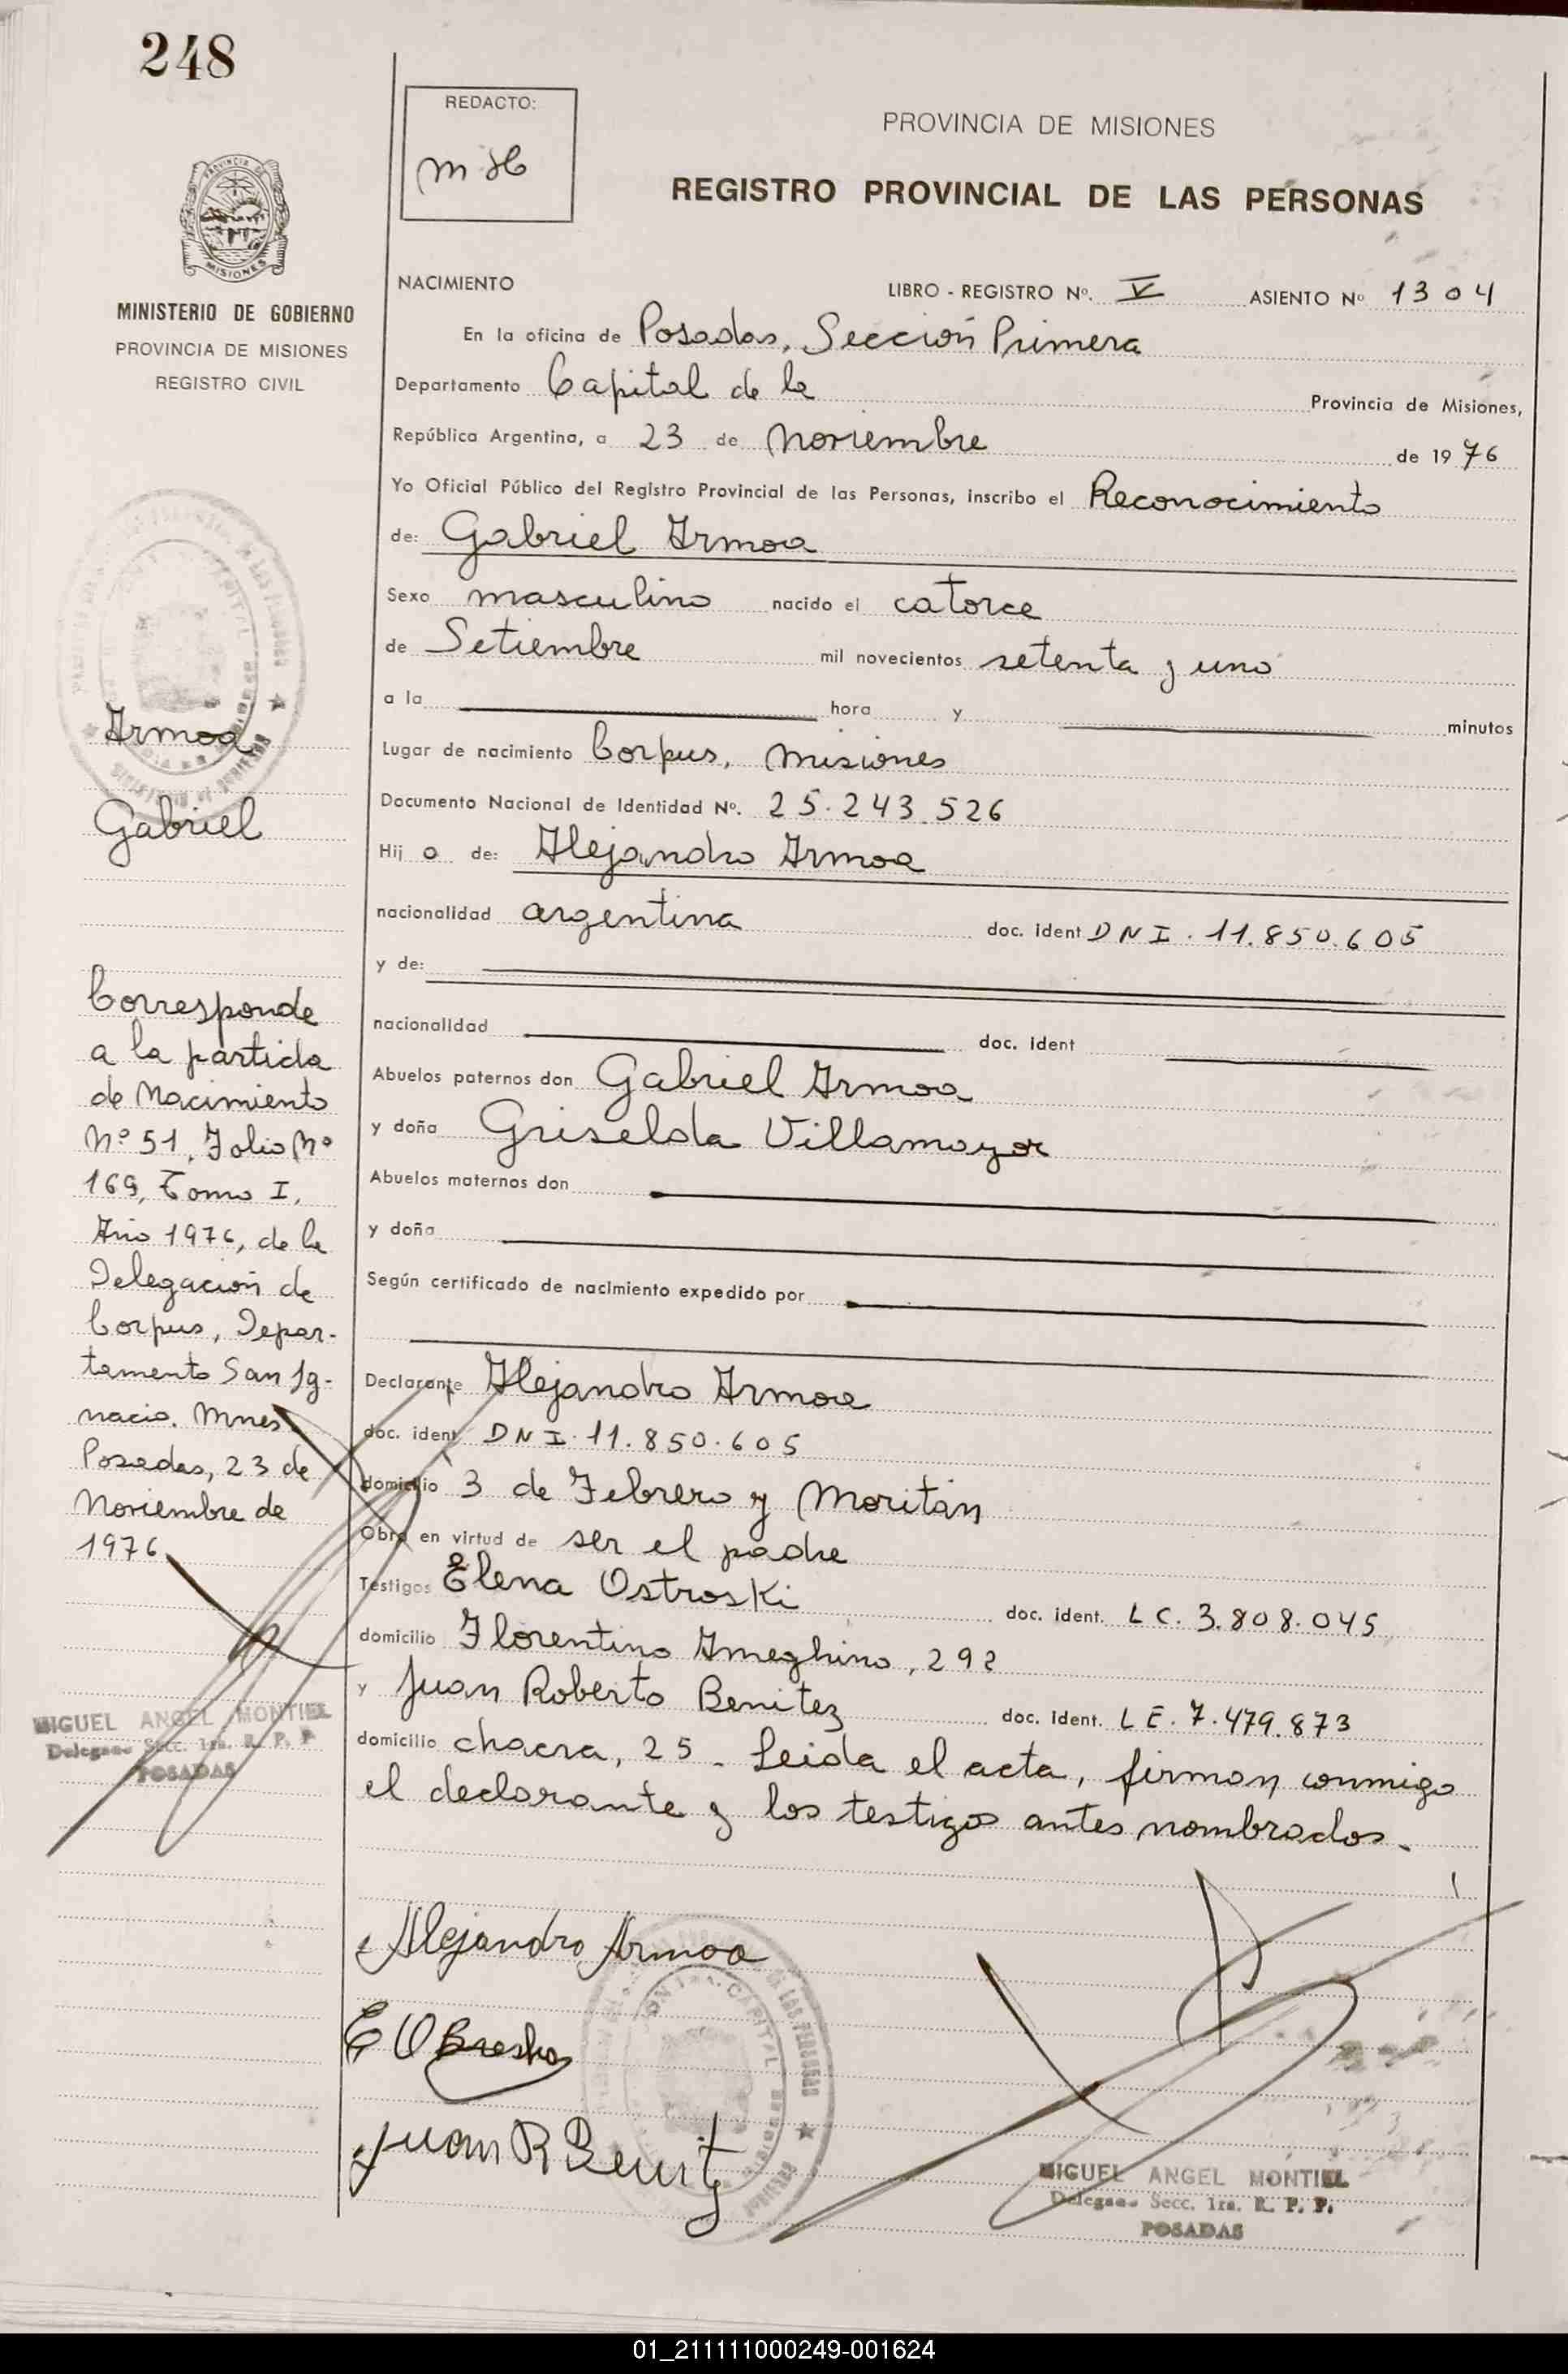 248
REDACTO:
PROVINCIA DE MISIONES
REGISTRO PROVINCIAL DE LAS PERSONAS
MISIONES
MINISTERIO DE GOBIERNO
PROVINCIA DE MISIONES
REGISTRO CIVIL
NACIMIENTO LIBRO - REGISTRO Nº. V ASIENTO Nº 1304
En la oficina de Posadas, Sección Primera
Departamento Capital de la Provincia de Misiones,
República Argentina, a 23 de Noviembre de 1976
Yo Oficial Público del Registro Provincial de las Personas, inscribo el Reconocimiento
de: Gabriel Armoa
Sexo masculino nacido el catorce
de Setiembre mil novecientos setenta y uno
a la hora y minutos
Lugar de nacimiento Corpus, Misiones
Documento Nacional de Identidad Nº. 25.243.526
Hijo de: Alejandro Armoa
nacionalidad argentina doc. ident DNI. 11.850.605
y de:
nacionalidad doc. ident
Abuelos paternos don Gabriel Armoa
y doña Griselda Villamayor
Abuelos maternos don
y doña
Según certificado de nacimiento expedido por
Declarante Alejandro Armoa
doc. ident DNI. 11.850.605
domicilio 3 de Febrero y Moritán
Obra en virtud de ser el padre
Testigos Elena Ostroski doc. ident. LC. 3.808.045
domicilio Florentino Ameghino, 292
y Juan Roberto Benitez doc. ident. LE. 7.479.873
domicilio chacra, 25. Leida el acta, firman conmigo
el declarante y los testigos antes nombrados.
Armoa
Gabriel
Corresponde
a la partida
de Nacimiento
Nº 51, Folio Nº
169, Tomo I,
Año 1976, de la
Delegación de
Corpus, Depar-
tamento San Ig-
nacio. Mnes
Posadas, 23 de
Noviembre de
1976
MIGUEL ANGEL MONTIEL
Delegado Secc. 1ra. R. P. P.
POSADAS
Alejandro Armoa
Juan R Benitz
MIGUEL ANGEL MONTIEL
Delegado Secc. 1ra. R. P. P.
POSADAS
01_211111000249-001624